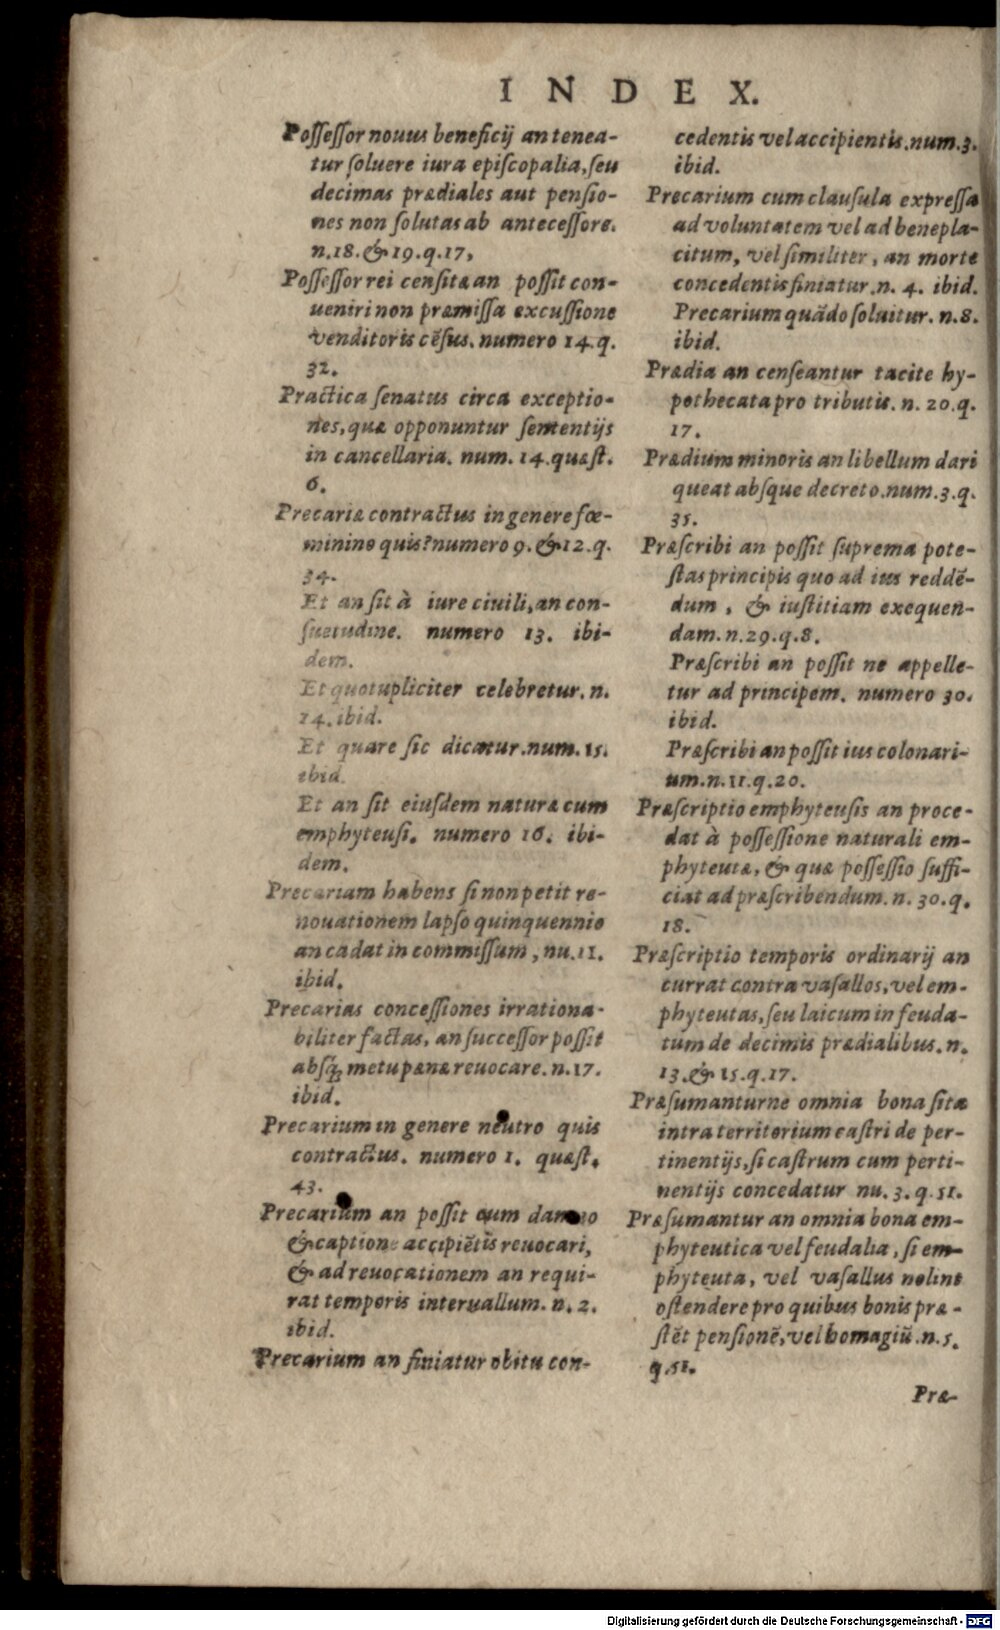 INDEX.
Poſſeſſor nouus beneficij an tenea-
tur ſoluere iura epiſcopalia, ſeu
decimas prædiales aut penſio-
nes non ſolutas ab anteceſſore.
n.18. & 19.q.17,
Poſſeſſor rei cenſitæ an poſſit con-
ueniri non præmiſſa excuſſione
venditoris cēſus. numero 14. q.
32.
Practica ſenatus circa exceptio-
nes, quæ opponuntur ſententijs
in cancellaria. num. 14. quæſt.
6.
Precariæ contractus in genere fœ-
minino quis? numero 9. & 12. q.
34.
Et an ſit à iure ciuili, an con-
ſuetudine. numero 13. ibi-
dem.
Et quotupliciter celebretur. n.
14. ibid.
Et quare ſic dicatur. num. 15.
ibid.
Et an ſit eiuſdem naturæ cum
emphyteuſi. numero 16. ibi-
dem.
Precariam habens ſi non petit re-
nouationem lapſo quinquennio
an cadat in commiſſum, nu. 11.
ibid.
Precarias conceſſiones irrationa-
biliter factas, an ſucceſſor poſſit
abſq; metu pænæ reuocare. n. 17.
ibid.
Precarium in genere neutro quis
contractus. numero 1. quæſt.
43.
Precarium an poſſit cum damno
& captione accipiētis reuocari,
& ad reuocationem an requi-
rat temporis interuallum. n. 2.
ibid.
Precarium an finiatur obitu con-
cedentis vel accipientis. num. 3.
ibid.
Precarium cum clauſula expreſſa
ad voluntatem vel ad benepla-
citum, vel ſimiliter, an morte
concedentis finiatur. n. 4. ibid.
Precarium quādo ſoluitur. n. 8.
ibid.
Prædia an cenſeantur tacite hy-
pothecata pro tributis. n. 20. q.
17.
Prædium minoris an libellum dari
queat abſque decreto. num. 3. q.
35.
Præſcribi an poſſit ſuprema pote-
ſtas principis quo ad ius reddē-
dum, & iuſtitiam exequen-
dam. n. 29. q. 8.
Præſcribi an poſſit ne appelle-
tur ad principem. numero 30.
ibid.
Præſcribi an poſſit ius colonari-
um. n. 11. q. 20.
Præſcriptio emphyteuſis an proce-
dat à poſſeſſione naturali em-
phyteutæ, & quæ poſſeſſio ſuffi-
ciat ad præſcribendum. n. 30. q.
18.
Præſcriptio temporis ordinarij an
currat contra vaſallos, vel em-
phyteutas, ſeu laicum in feuda-
tum de decimis prædialibus. n.
13. & 15. q. 17.
Præſumanturne omnia bona ſita
intra territorium caſtri de per-
tinentijs, ſi caſtrum cum perti-
nentijs concedatur nu. 3. q. 51.
Præſumantur an omnia bona em-
phyteutica vel feudalia, ſi em-
phyteuta, vel vaſallus nolint
oſtendere pro quibus bonis præ-
ſtēt penſionē, vel homagiū. n. 5.
q. 51.
Præ-
Digitalisierung gefördert durch die Deutsche Forschungsgemeinschaft - DFG